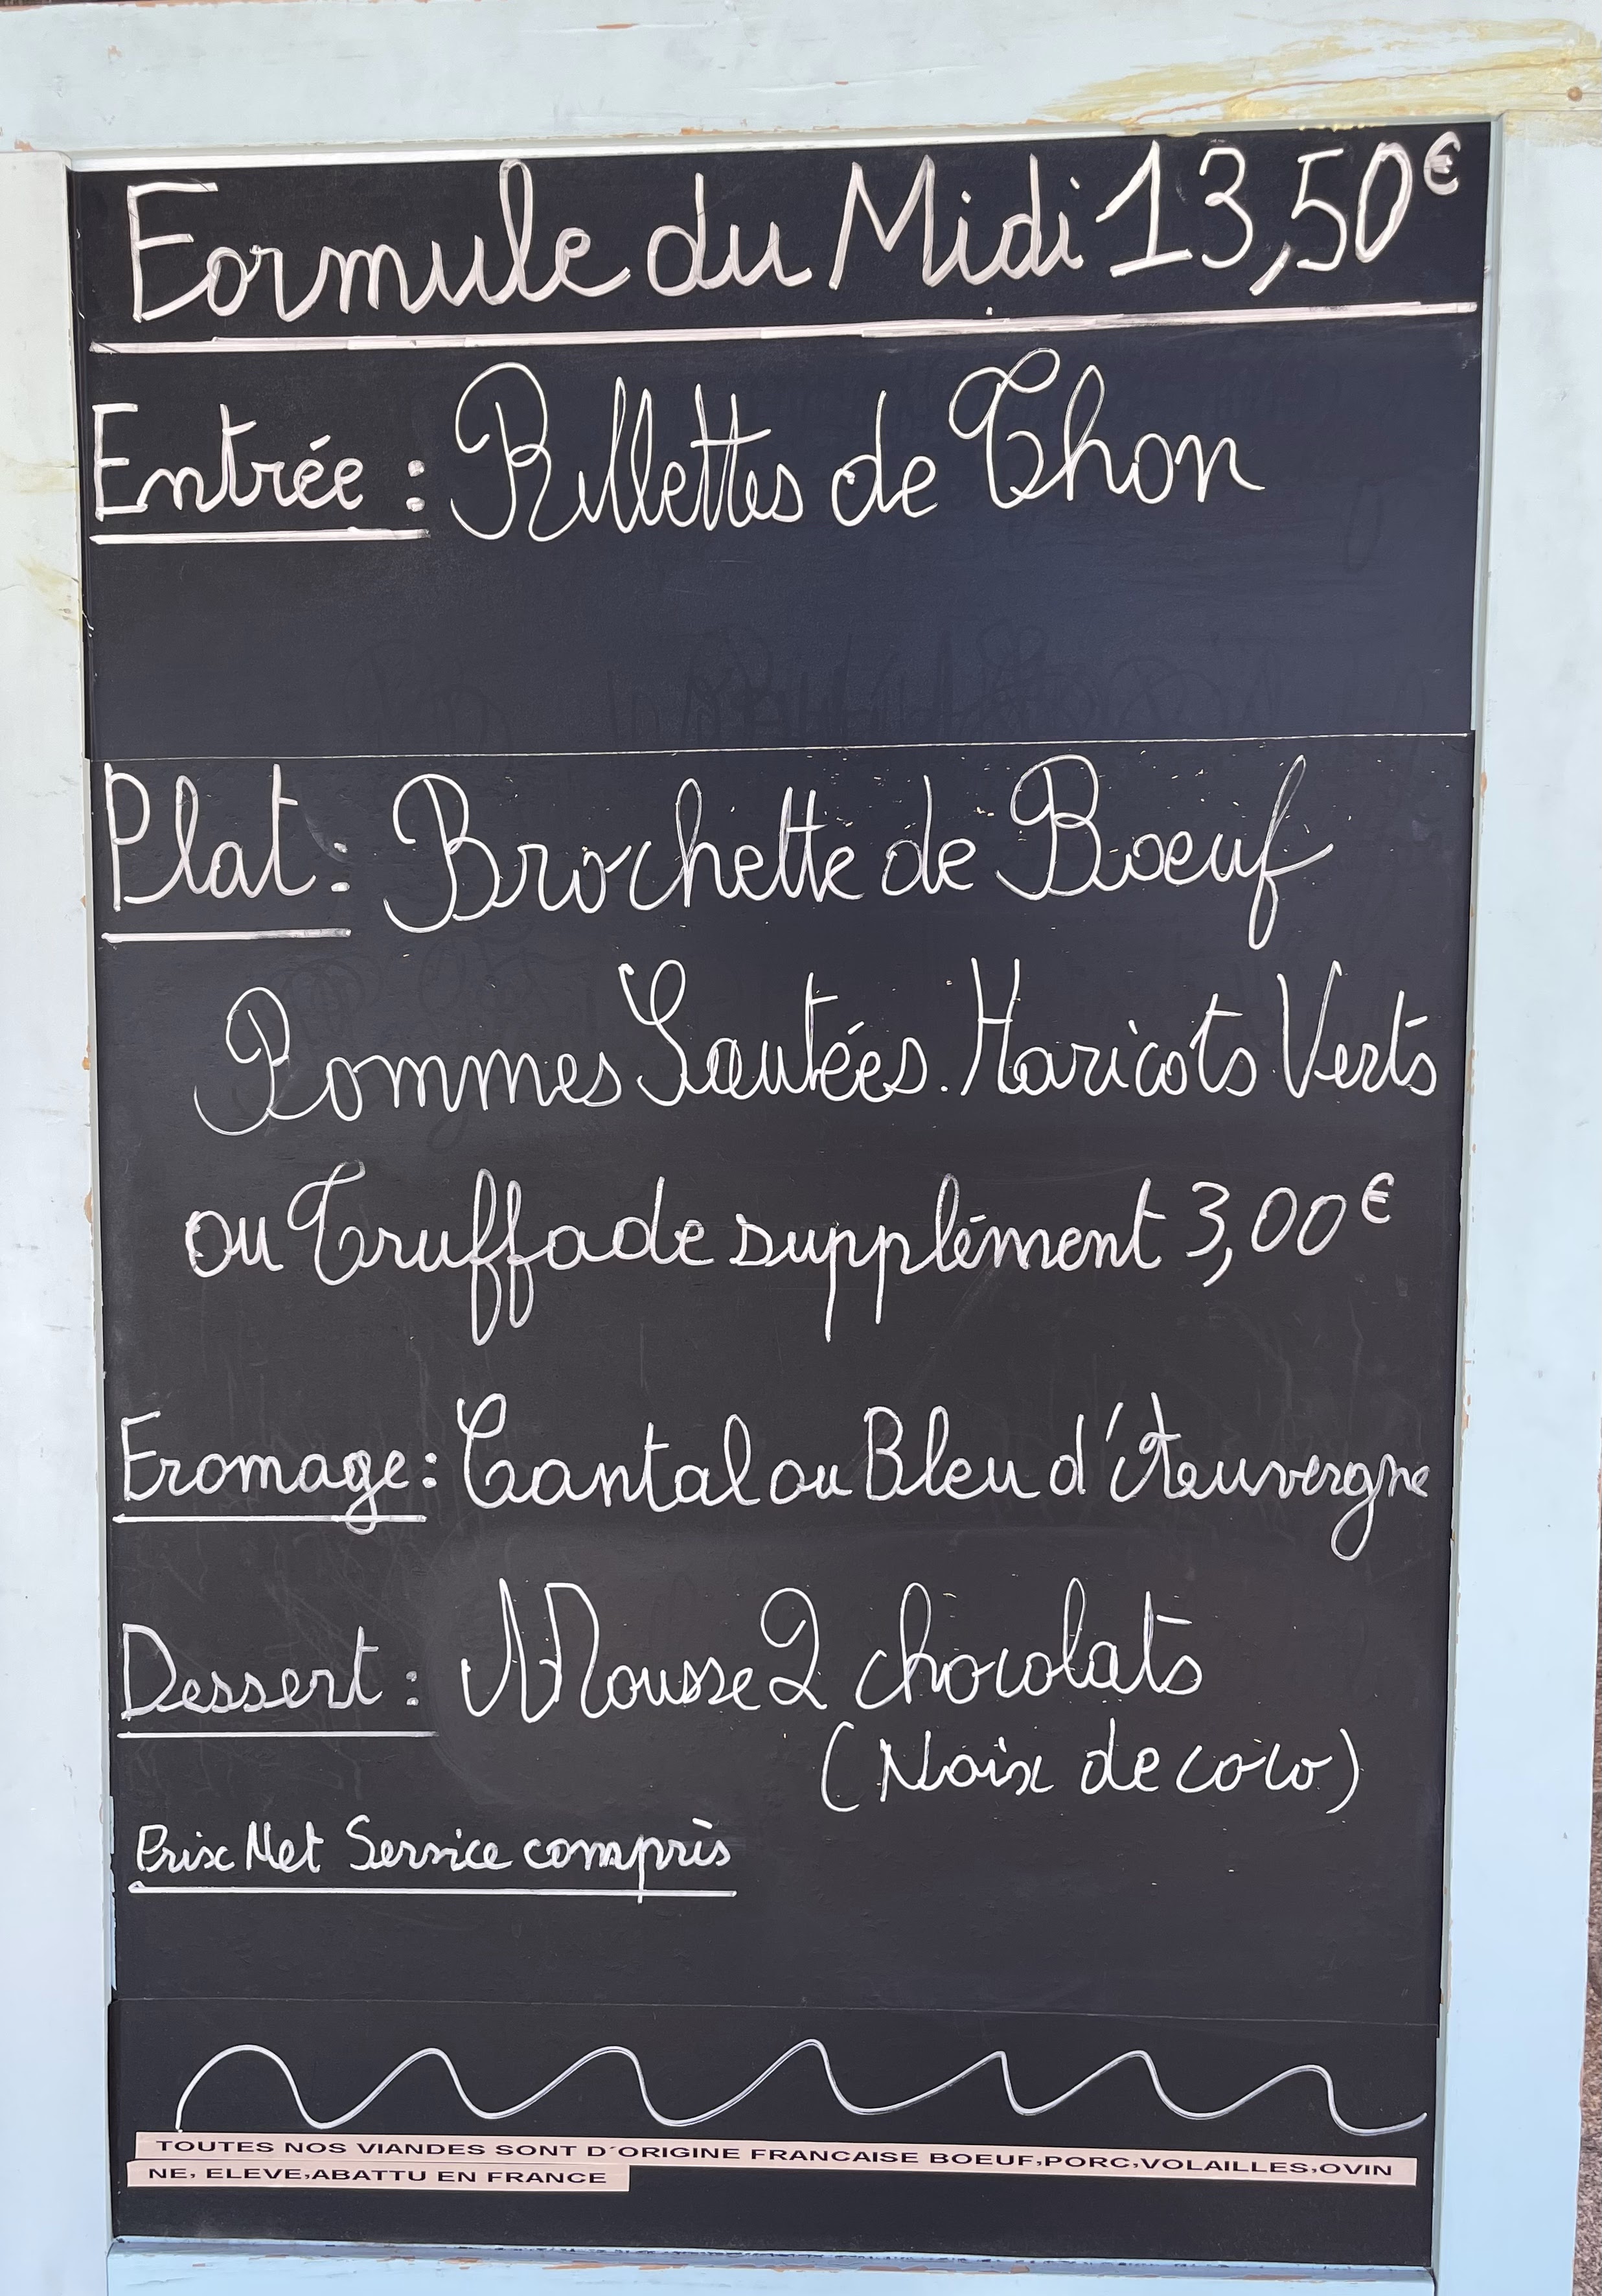 Formule du Midi 13,50€
Entrée : Rillettes de Thon
Plat : Brochette de Boeuf
Pommes Sautées. Haricots Verts
ou Truffade supplément 3,00€
Fromage : Cantal ou Bleu d'Auvergne
Dessert : Mousse 2 chocolats
(Noix de coco)
Prix Net Service compris
TOUTES NOS VIANDES SONT D'ORIGINE FRANCAISE BOEUF,PORC,VOLAILLES,OVIN
NE, ELEVE,ABATTU EN FRANCE